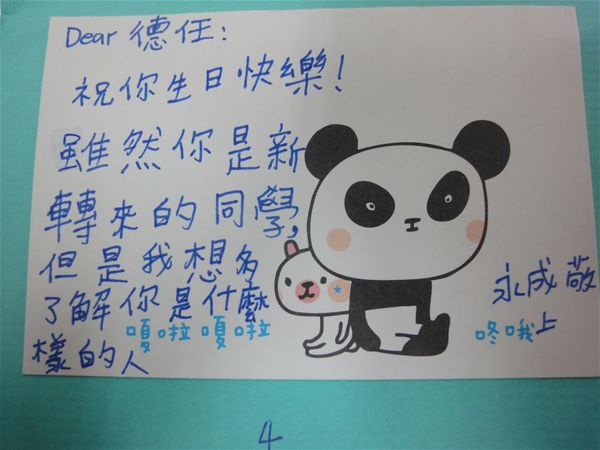 Dear 德任:
祝你生日快樂!
雖然你是新
轉來的同學,
但是我想多
了解你是什麼
樣的人
嘎啦嘎啦
永成敬
上
咚哦
4